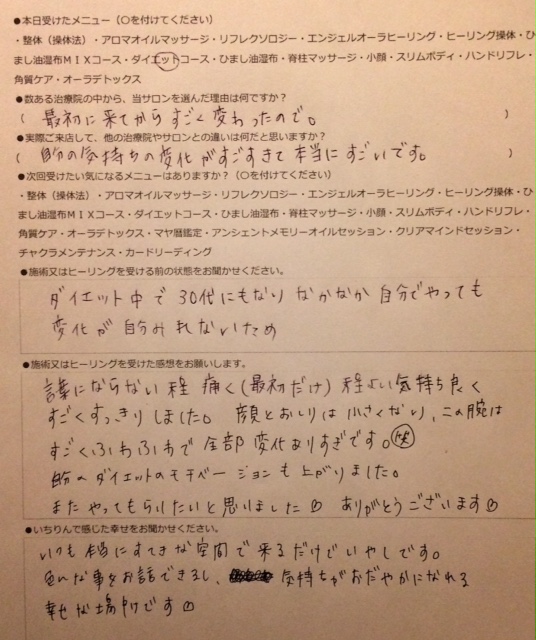 ●本日受けたメニュー（○を付けてください）
・整体（操体法）・アロマオイルマッサージ・リフレクソロジー・エンジェルオーラヒーリング・ヒーリング操体・ひ
まし油湿布ＭＩＸコース・ダイエットコース・ひまし油湿布・脊柱マッサージ・小顔・スリムボディ・ハンドリフレ・
角質ケア・オーラデトックス
●数ある治療院の中から、当サロンを選んだ理由は何ですか？
（ 最初に来てからすごく変わったので。 ）
●実際ご来店して、他の治療院やサロンとの違いは何だと思いますか？
（ 自分の気持ちの変化がすごすぎて本当にすごいです。 ）
●次回受けたい気になるメニューはありますか？（○を付けてください）
・整体（操体法）・アロマオイルマッサージ・リフレクソロジー・エンジェルオーラヒーリング・ヒーリング操体・ひ
まし油湿布ＭＩＸコース・ダイエットコース・ひまし油湿布・脊柱マッサージ・小顔・スリムボディ・ハンドリフレ・
角質ケア・オーラデトックス・マヤ暦鑑定・アンシェントメモリーオイルセッション・クリアマインドセッション・
チャクラメンテナンス・カードリーディング
●施術又はヒーリングを受ける前の状態をお聞かせください。
ダイエット中で30代にもなりなかなか自分でやっても
変化が自分みれないため
●施術又はヒーリングを受けた感想をお願いします。
言葉にならない程痛く(最初だけ)程よい気持ち良く
すごくすっきりしました。顔とおしりは小さくなり、この腕は
すごくふわふわで全部変化ありすぎです。笑
自分のダイエットのモチベーションも上がりました。
またやってもらいたいと思いました ありがとうございます
●いちりんで感じた幸せをお聞かせください。
いつも本当にすてきな空間で来るだけでいやしです。
色んな事をお話できるし、気持ちがおだやかになれる
幸せな場所です